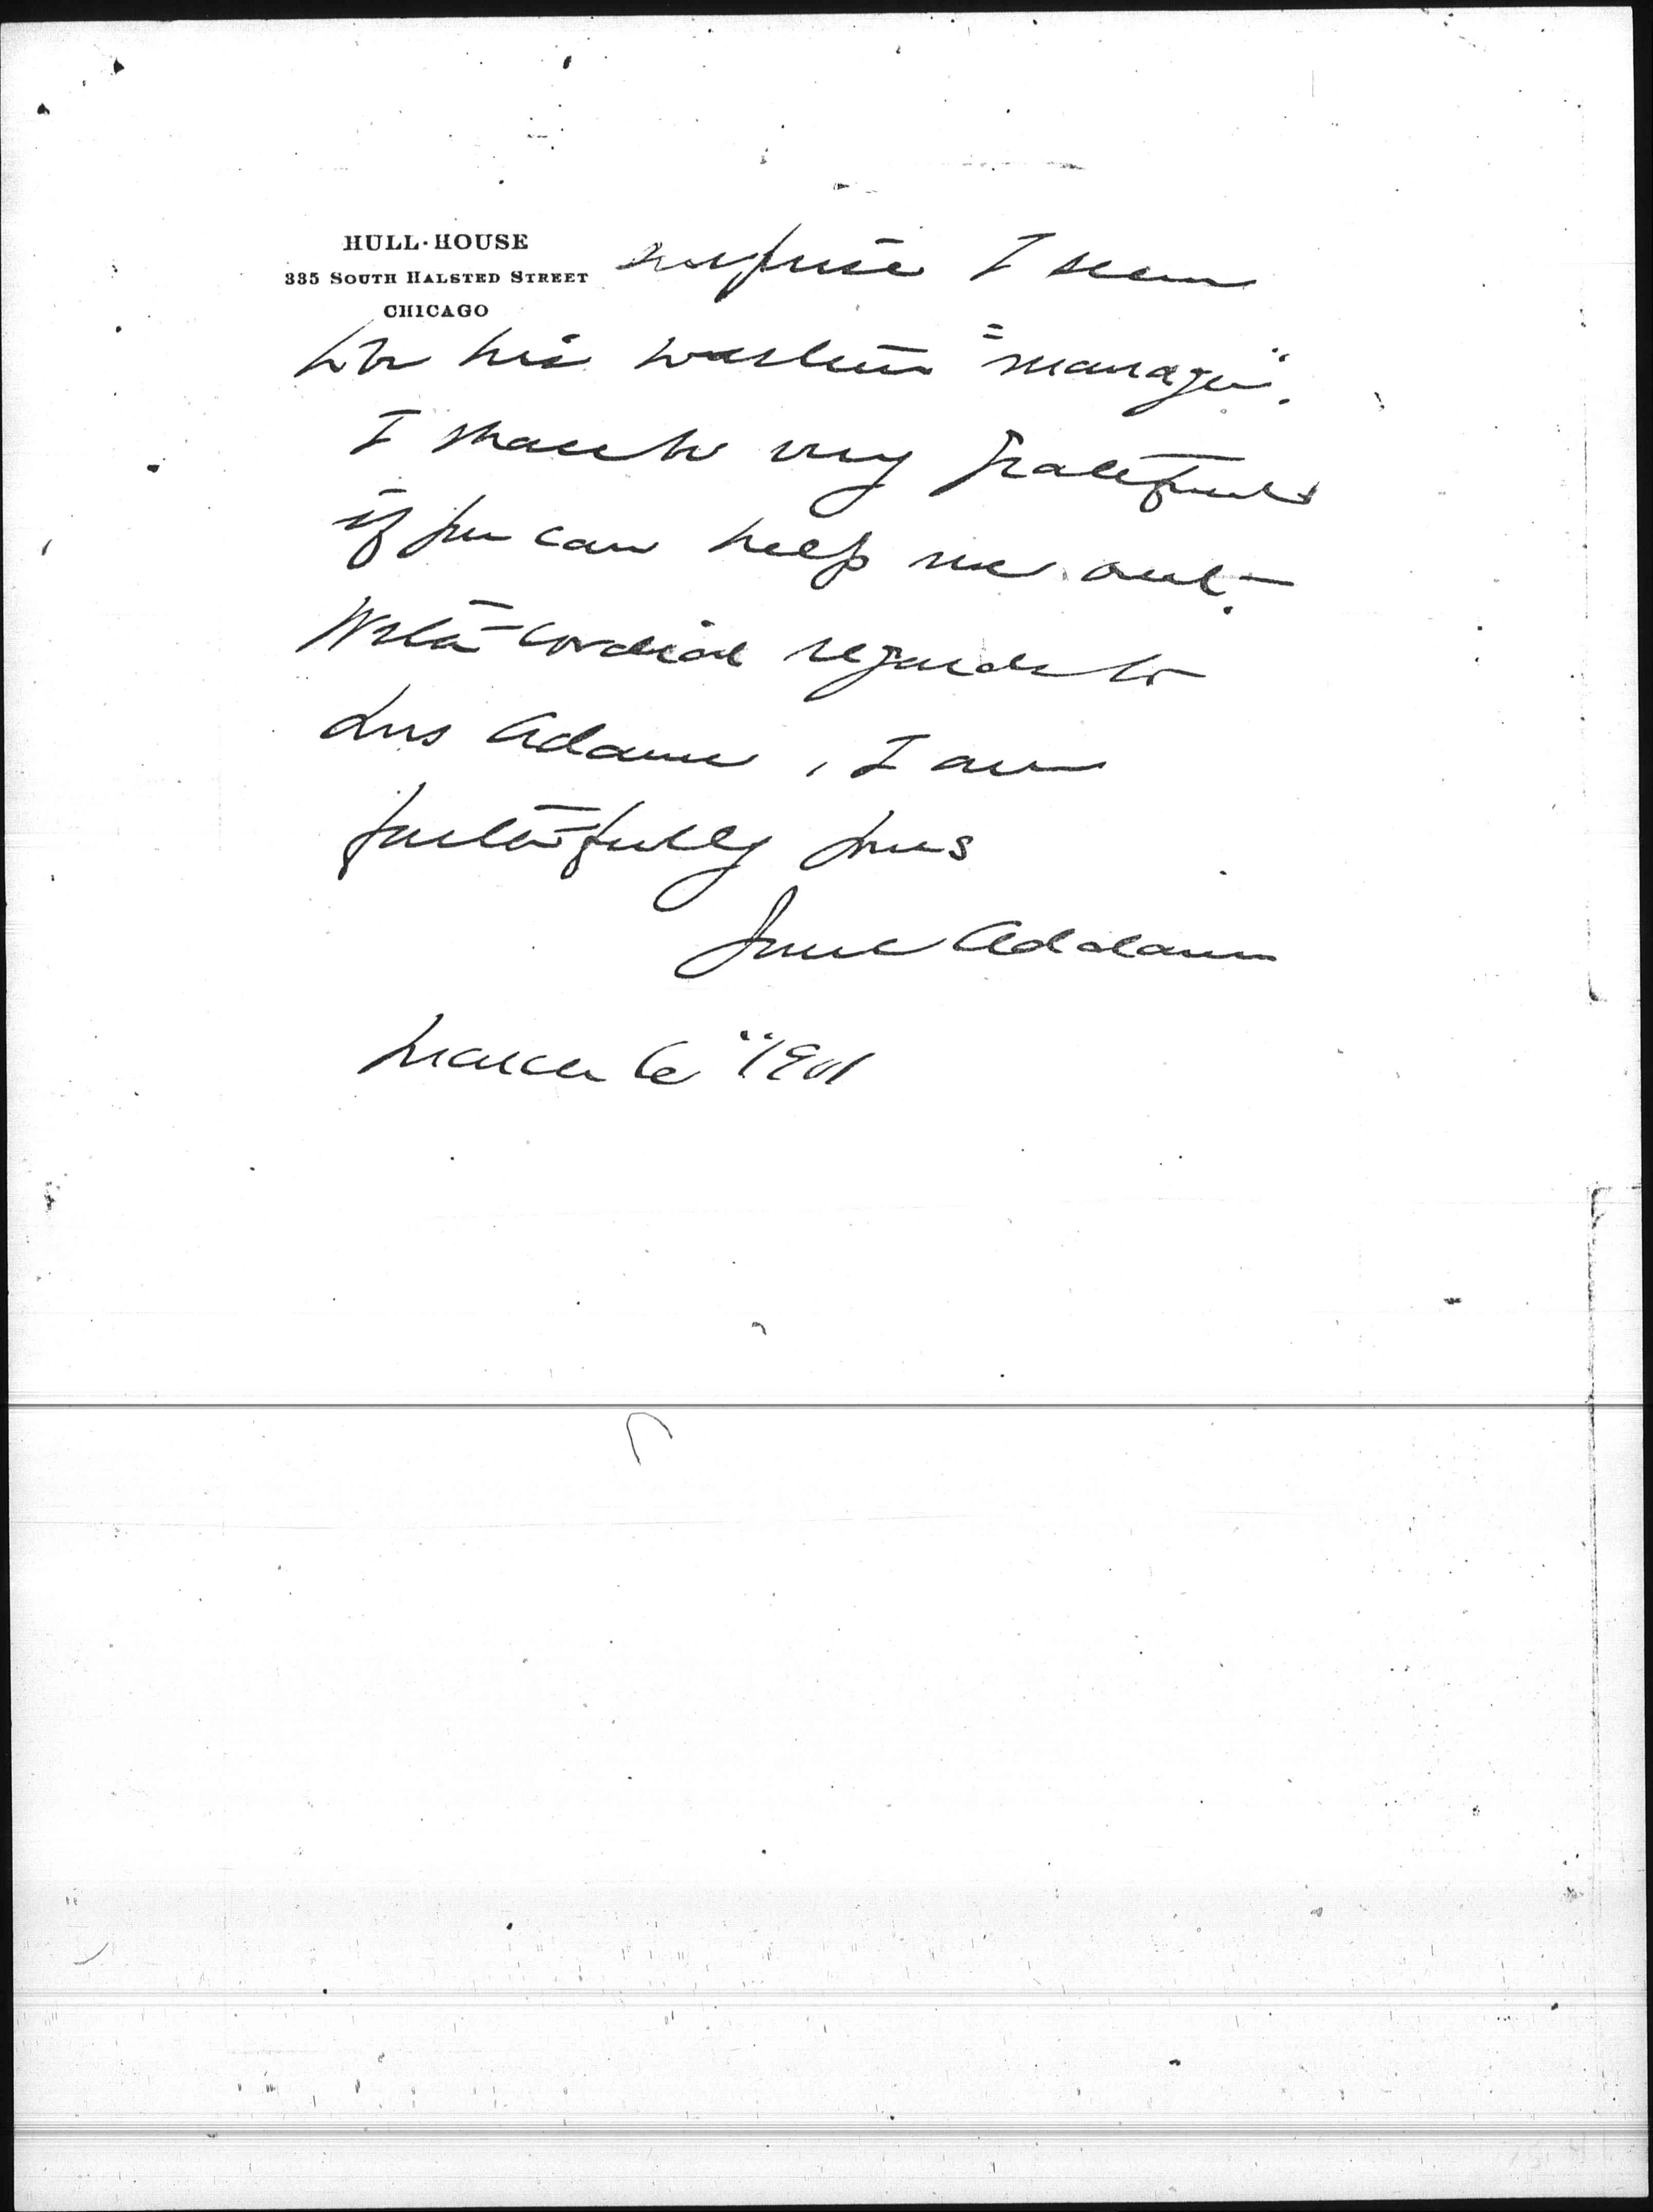 HULL-HOUSE
335 SOUTH HALSTED STREET
CHICAGO
surprise I seem
to be his western "manager".
I shall be very grateful
if you can help me out.
With cordial regards to
Mrs Adams, I am
faithfully yours
Jane Addams
March 6" 1901